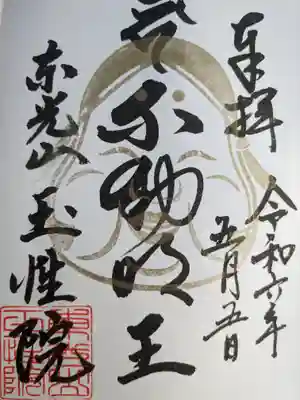 奉拝
令和六年
五月五日
不動明王
東光山
玉性院